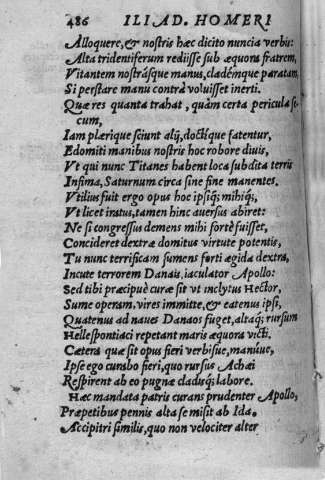 486 ILIAD. HOMERI
Alloquere, & nostris hæc dicito nuncia verbis:
Alta tridentiferum rediisse sub æquora fratrem,
Vitantem nostrásque manus, cladémque paratam,
Si perstare manu contrà voluisset inerti.
Quæ res quanta trahat, quàm certa pericula se-
cum,
Iam plærique sciunt alij, doctíque fatentur,
Edomiti manibus nostris hoc robore divis,
Vt qui nunc Titanes habent loca subdita terris
Infima, Saturnum circa sine fine manentes.
Vtilius fuit ergo opus hoc ipsiq; mihiq;,
Vt licet iratus, tamen hinc aversus abiret:
Ne si congressus demens mihi fortè fuisset,
Concideret dextræ domitus virtute potentis,
Tu nunc terrificam sumens forti ægida dextra,
Incute terrorem Danais, iaculator Apollo:
Sed tibi præcipuè curæ sit vt inclytus Hector,
Sume operam, vires immitte, & eatenus ipsi,
Quatenus ad naves Danaos fuget, altaq; rursum
Hellespontiaci repetant maris æquora victi.
Cætera quæ sit opus fieri verbisue, manúue,
Ipse ego curabo fieri, quo rursus Achæi
Respirent ab eo pugnæ cladisq; labore.
Hæc mandata patris curans prudenter Apollo,
Præpetibus pennis alta se misit ab Ida.
Accipitri similis, quo non velociter alter